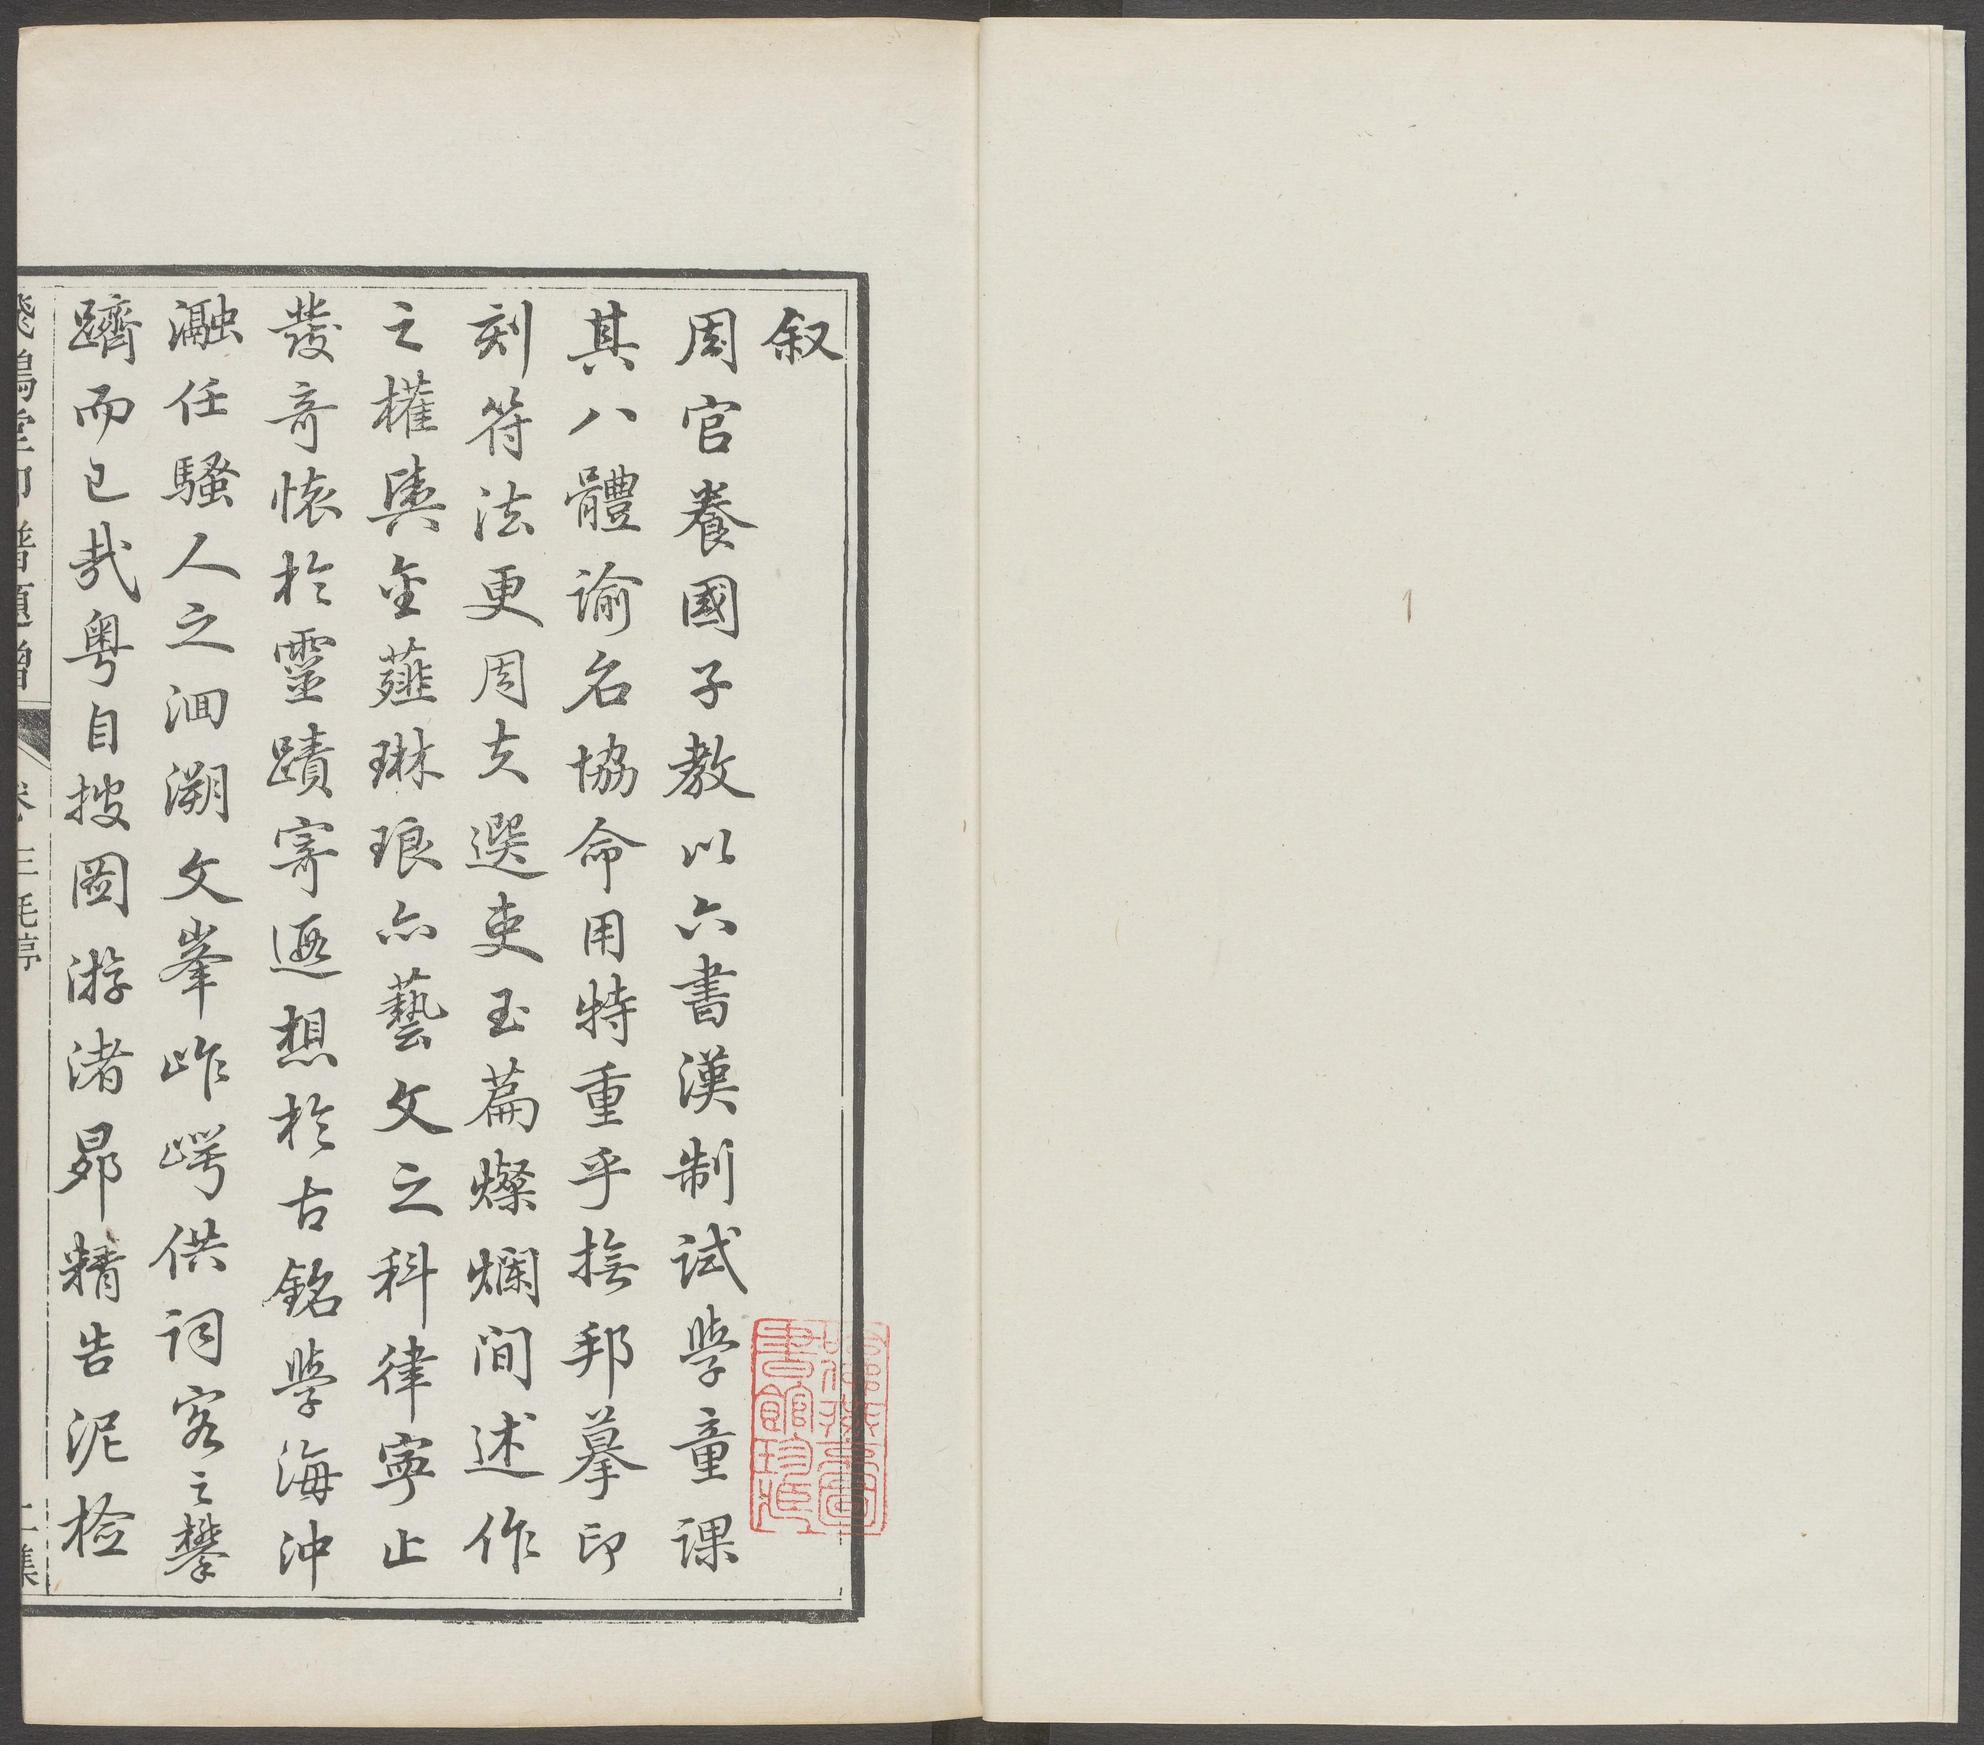 叙
周官養國子教以六書漢制試學童課
其八體諭名協命用特重乎撫邦摹印
刻符法更周史選吏玉篇燦爛間述作
之權輿金薤琳琅亦藝文之科律寧止
發奇懷於靈蹟寄遐想於古銘學海沖
瀜任騷人之洄溯文峯岝崿供詞客之攀
躋而已哉粵自披圖游渚昴精告泥檢
飛鴻堂印譜題贈 卷 三 二集
書館珍藏